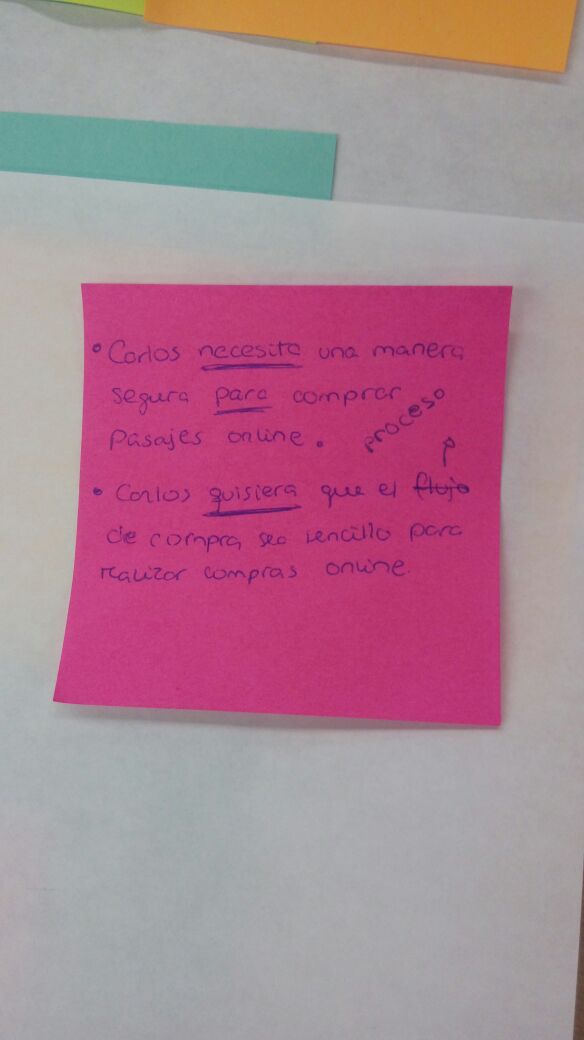 • Carlos necesita una manera
segura para comprar
pasajes online.
proceso
• Carlos quisiera que el flujo
de compra sea sencillo para
realizar compras online.